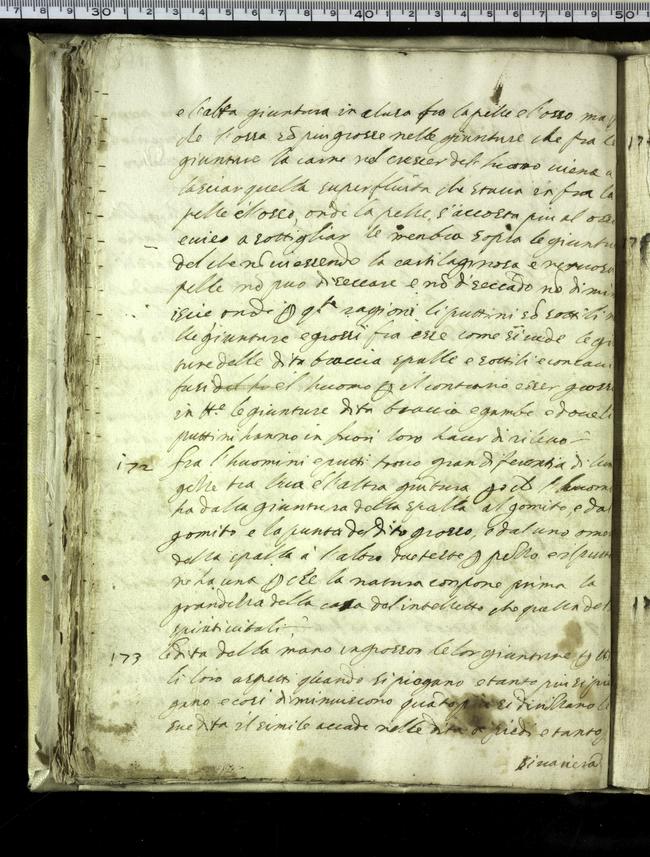 7 8 9 30 1 2 3 4 5 6 7 8 9 40 1 2 3 4 5 6 7 8 9 50
e l'altra giuntura in alura fra la pelle e l'osso ma
che l'ossa sō piu grosse nelle giunture che fra le
giunture la carne nel crescier dell'huomo viene a
lasciar quella superfluita che staua in fra la
pelle e l'osso, onde la pelle s'accosta piu al osso
e uiēe a sottigliar le menbra sopra le giuntu
del che nō ui essendo la cartilaginosa e neruosa
pelle nō puo diseccare e nō diseccādo nō dimi
isce onde ꝑ qste ragioni li puttini sō sottili n
lle giunture e grossi fra esse come si uede le giū
ture delle dita braccia spalle e sottili e concaui
fusi el huomo ꝑ il contrario esser grosso
in tte le giunture dita braccia e gambe e doue li
puttini hanno in fuori loro hauer di rileuo
172 fra l'huomini e putti trouo gran diferentia di lun
geze tra l'una e l'altra giūtura ꝑ che l'huomo
ha dalla giuntura della spalla al gomito e dal
gomito e la punta del dito grosso, e dal uno omer
della spalla a l'altro due teste ꝑ pezzo, e il putto
ne ha una ꝑ che la natura conpone prima la
grandezza della casa del intelletto che quella deli
spiriti uitali
173 le dita della mano ingrosson le lor giunture ꝑ tti
li loro aspetti quando si piegano e tanto piu si pie
gano e cosi diminuiscono quāto piu si dirizzano le
sue dita il simile accade nelle dita de piedi e tanto
si uariera